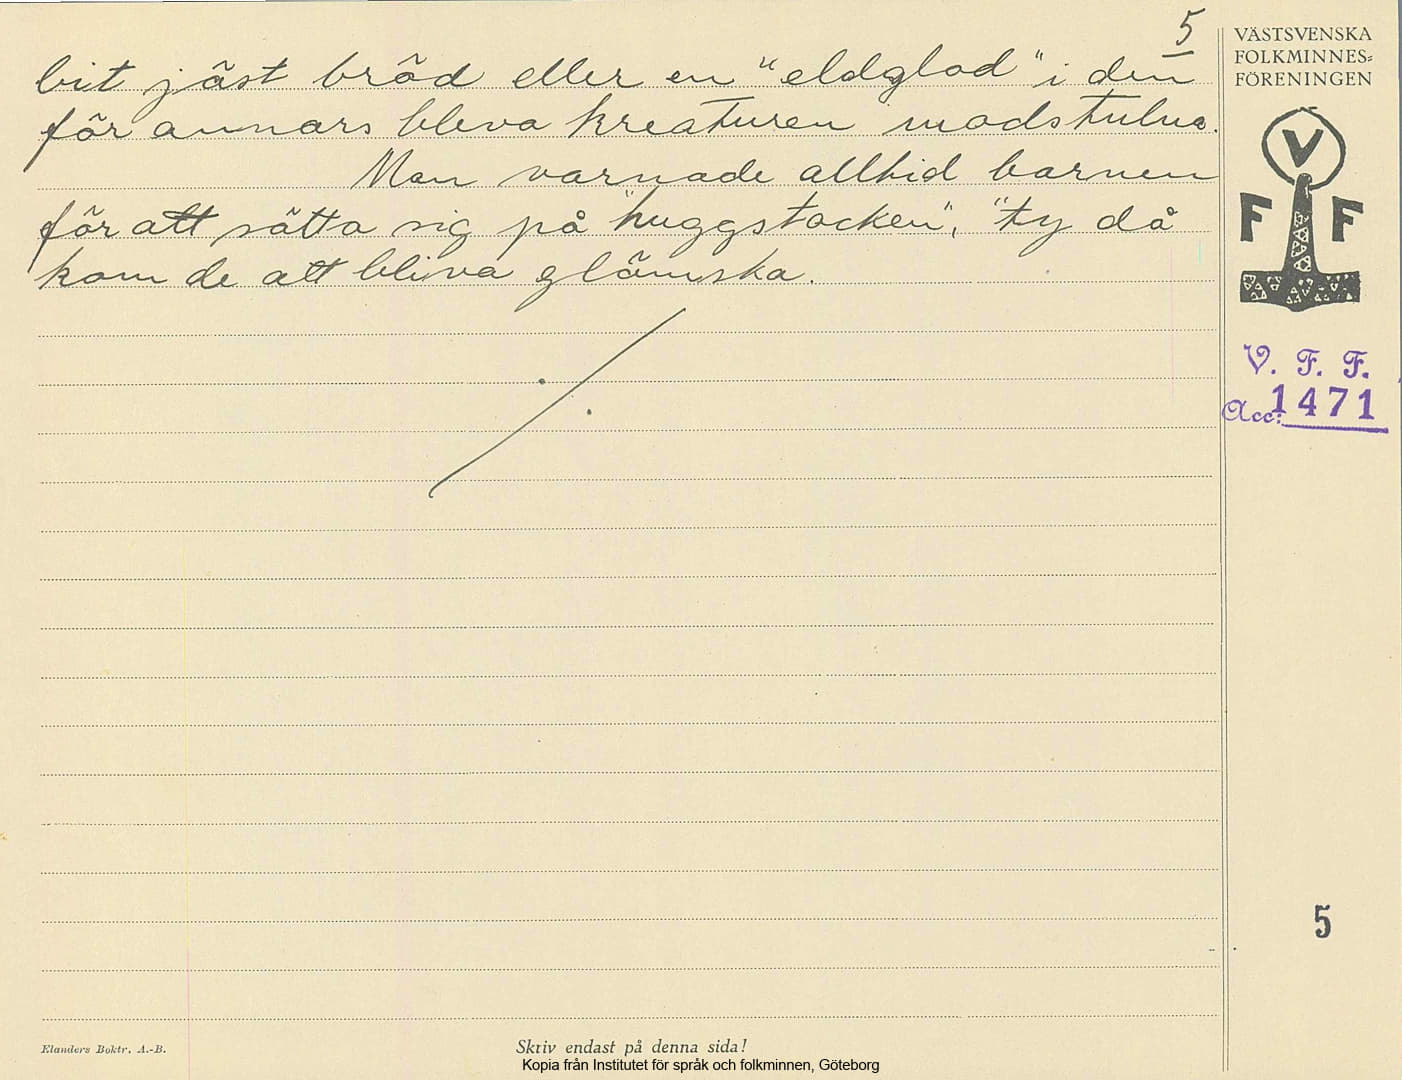 5
bit jäst bröd eller en "eldglod" i den
för annars bleva kreaturen modstulna.
Man varnade alltid barnen
för att sätta sig på "huggstocken", "ty då
kom de att bliva glömska.
VÄSTSVENSKA
FOLKMINNES=
FÖRENINGEN
V
F F
V. F. F.
Acc: 1471
5
Elanders Boktr. A.-B.
Skriv endast på denna sida!
Kopia från Institutet för språk och folkminnen, Göteborg